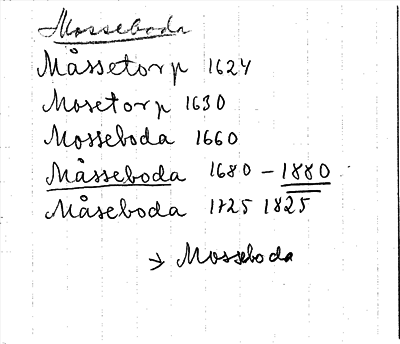 Mosseboda
Måssetorp 1624
Mosetorp 1630
Mosseboda 1660
Måsseboda 1680 – 1880
Måseboda 1725 1825
→ Mosseboda